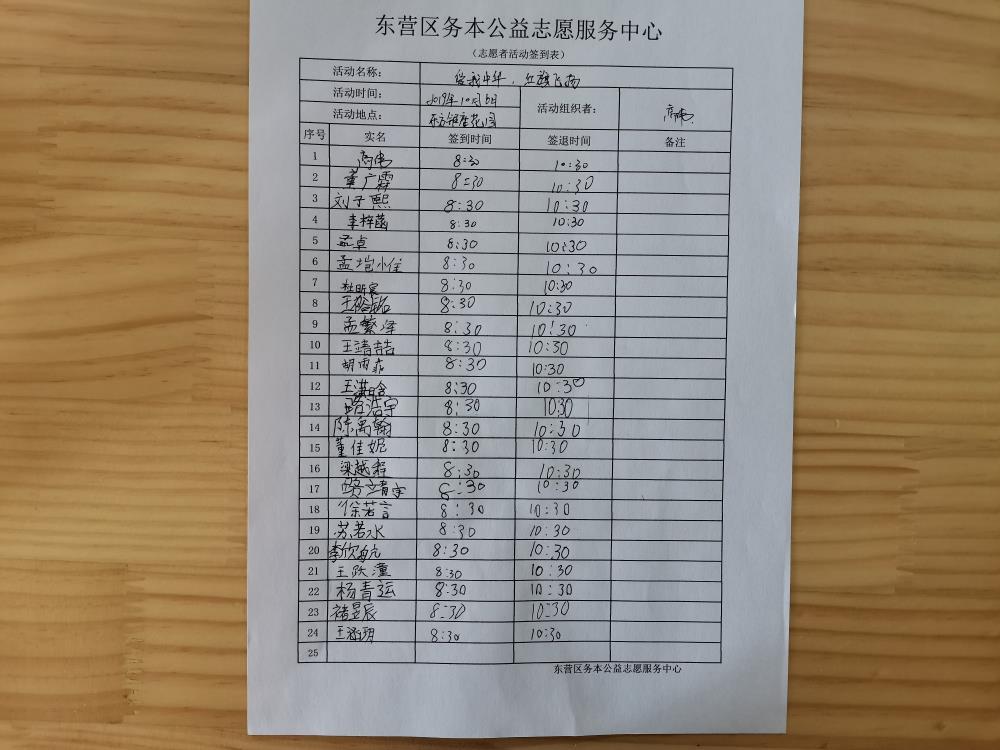 东营区务本公益志愿服务中心
（志愿者活动签到表）
活动名称： 中华，红旗飞扬
活动时间： 2019年10月6日 活动组织者：
活动地点： 东方银座花园
序号 实名 签到时间 签退时间 备注
1 8:30 10:30
2 董广霖 8:30 10:30
3 刘子熙 8:30 10:30
4 李梓菡 8:30 10:30
5 孟卓 8:30 10:30
6 孟垲 8:30 10:30
7 8:30 10:30
8 王 8:30 10:30
9 孟繁泽 8:30 10:30
10 王靖喆 8:30 10:30
11 胡雨菲 8:30 10:30
12 王湛晗 8:30 10:30
13 路浩宇 8:30 10:30
14 陈禹翰 8:30 10:30
15 董佳妮 8:30 10:30
16 梁越 8:30 10:30
17 路靖宇 8:30 10:30
18 徐若言 8:30 10:30
19 苏若水 8:30 10:30
20 李欣 8:30 10:30
21 王跃潼 8:30 10:30
22 杨青运 8:30 10:30
23 褚昱辰 8:30 10:30
24 王涵玥 8:30 10:30
25
东营区务本公益志愿服务中心